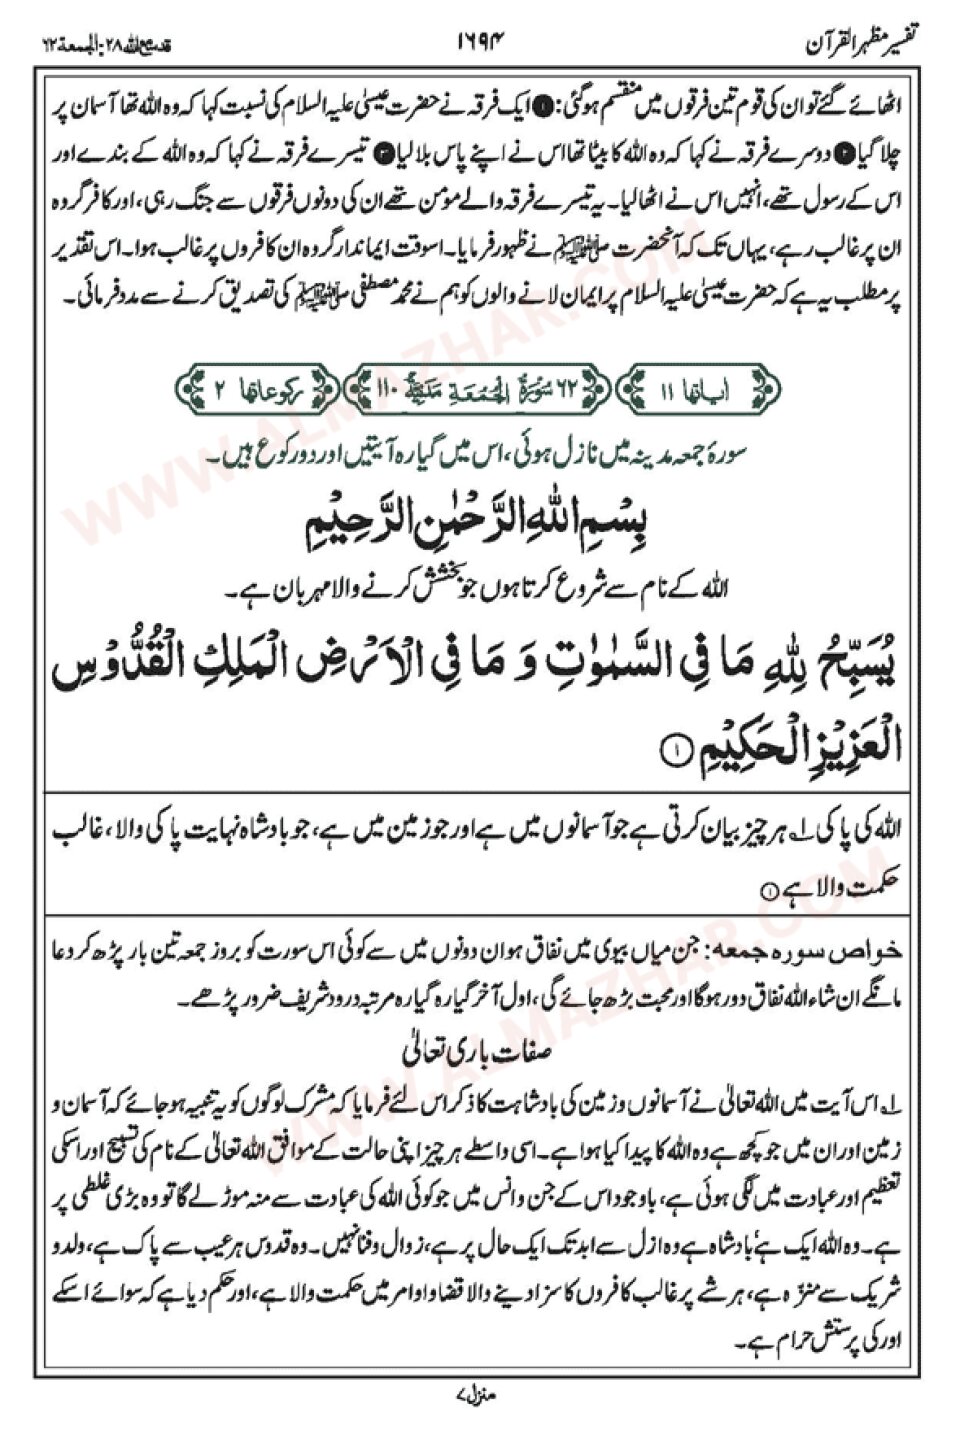 تفسیر مظہر القرآن
۱۶۹۴
قد سمع اللہ ۲۸ : الجمعۃ ۶۲
اٹھائے گئے تو ان کی قوم تین فرقوں میں منقسم ہوگئی: ۱ ایک فرقہ نے حضرت عیسیٰ علیہ السلام کی نسبت کہا کہ وہ اللہ تھا آسمان پر
چلا گیا ۲ دوسرے فرقہ نے کہا کہ وہ اللہ کا بیٹا تھا اس نے اپنے پاس بلا لیا ۳ تیسرے فرقہ نے کہا کہ وہ اللہ کے بندے اور
اس کے رسول تھے، انہیں اس نے اٹھا لیا۔ یہ تیسرے فرقہ والے مؤمن تھے ان کی دونوں فرقوں سے جنگ رہی، اور کافر گروہ
ان پر غالب رہے، یہاں تک کہ آنحضرت ﷺ نے ظہور فرمایا۔ اسوقت ایماندار گروہ ان کافروں پر غالب ہوا۔ اس تقدیر
پر مطلب یہ ہے کہ حضرت عیسیٰ علیہ السلام پر ایمان لانے والوں کو ہم نے محمد مصطفی ﷺ کی تصدیق کرنے سے مدد فرمائی۔
ایاتھا ۱۱
۶۲ سُوْرَۃُ الْجُمُعَۃِ مَدَنِیَّۃٌ ۱۱۰
رکوعاتھا ۲
سورۂ جمعہ مدینہ میں نازل ہوئی، اس میں گیارہ آیتیں اور دو رکوع ہیں۔
بِسْمِ اللّٰہِ الرَّحْمٰنِ الرَّحِیْمِ
اللہ کے نام سے شروع کرتا ہوں جو بخشش کرنے والا مہربان ہے۔
یُسَبِّحُ لِلّٰہِ مَا فِی السَّمٰوٰتِ وَ مَا فِی الْاَرْضِ الْمَلِکِ الْقُدُّوْسِ
الْعَزِیْزِ الْحَکِیْمِ ۱
اللہ کی پاکی ۱ ہر چیز بیان کرتی ہے جو آسمانوں میں ہے اور جو زمین میں ہے، جو بادشاہ نہایت پاکی والا، غالب
حکمت والا ہے ۱
خواص سورہ جمعہ: جن میاں بیوی میں نفاق ہو ان دونوں میں سے کوئی اس سورت کو بروز جمعہ تین بار پڑھ کر دعا
مانگے ان شاء اللہ نفاق دور ہوگا اور محبت بڑھ جائے گی، اول آخر گیارہ گیارہ مرتبہ درود شریف ضرور پڑھے۔
صفات باری تعالیٰ
۱ اس آیت میں اللہ تعالیٰ نے آسمانوں و زمین کی بادشاہت کا ذکر اس لئے فرمایا کہ مشرک لوگوں کو یہ تنبیہ ہو جائے کہ آسمان و
زمین اور ان میں جو کچھ ہے وہ اللہ کا پیدا کیا ہوا ہے۔ اسی واسطے ہر چیز اپنی حالت کے موافق اللہ تعالیٰ کے نام کی تسبیح اور اسکی
تعظیم اور عبادت میں لگی ہوئی ہے، باوجود اس کے جن و انس میں جو کوئی اللہ کی عبادت سے منہ موڑ لے گا تو وہ بڑی غلطی پر
ہے۔ وہ اللہ ایک ہے بادشاہ ہے وہ ازل سے ابد تک ایک حال پر ہے، زوال و فنا نہیں۔ وہ قدوس ہر عیب سے پاک ہے، ولد و
شریک سے منزّہ ہے، ہر شے پر غالب کافروں کا سزا دینے والا قضا و اوامر میں حکمت والا ہے، اور حکم دیا ہے کہ سوائے اسکے
اور کی پرستش حرام ہے۔
منزل ۷
WWW.ALMAZHAR.COM
WWW.ALMAZHAR.COM